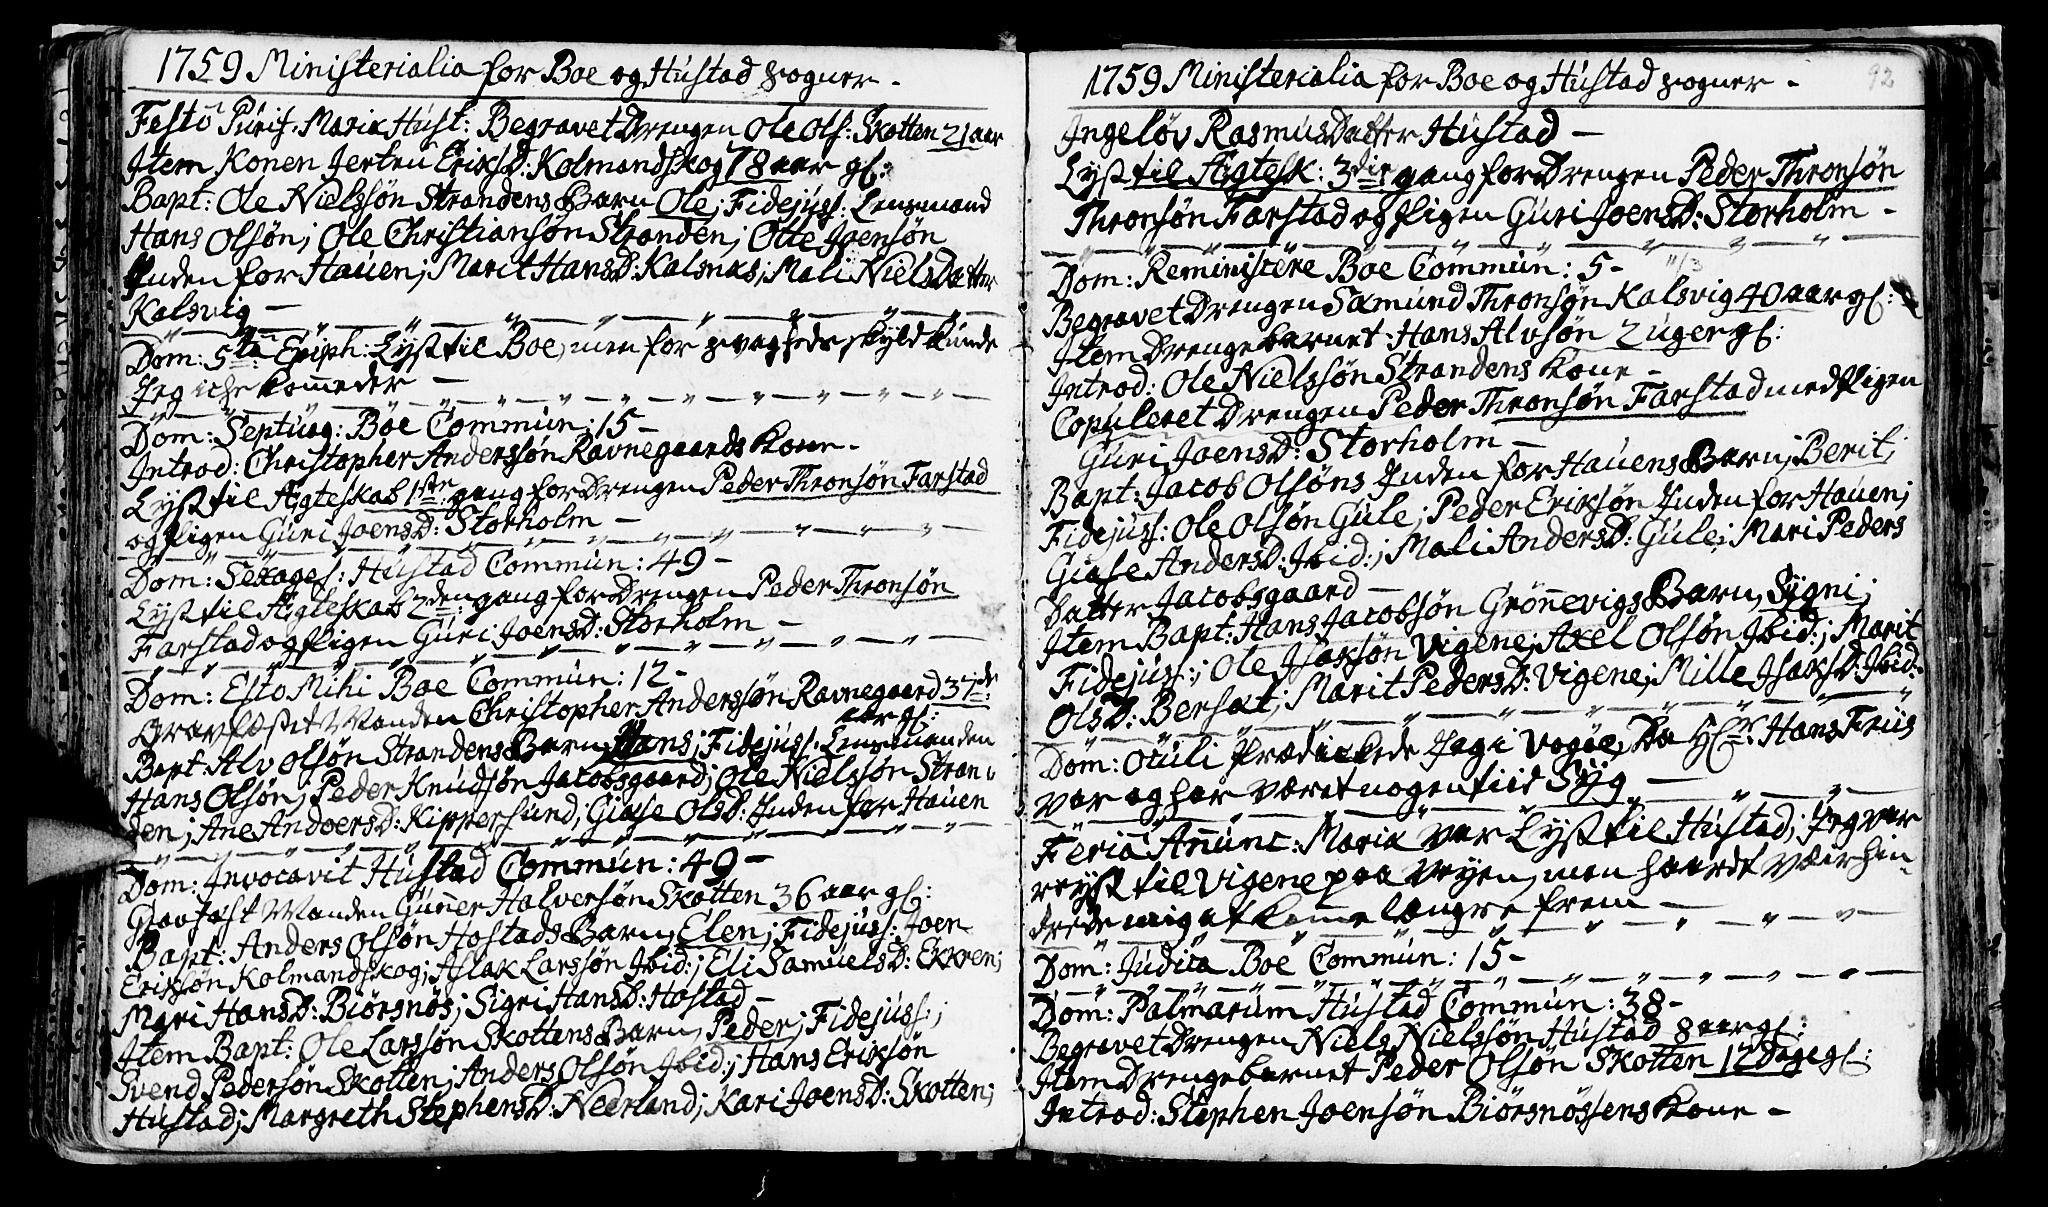 1759 Ministerialia for Boe og Hustad sogner -
Festo Purif. Mariæ Hust: Begravet Drengen Ole Ols: Skotten 21 aar
Item Konen Jertru EriksD: Kolmandskog 78 aar gl:
Bapt: Ole Nielssøn Strandens Barn Ole; Fidejuss: Lensmand
Hans Olsøn; Ole Christiansøn Stranden; Otte Joensøn
Inden for Hauen; Marit HansD: Kalsnæs; Mali NielsDatter
Kalsvig -
Dom: 5ta Epiph: Lyst til Boe, men for svagheds skyld kunde
Jeg iche komme der -
Dom: Septuag: Boe Commun: 15 -
Introd: Christopher Anderssøn Ravnegaards Kone -
Lyst til Ægteskab 1ste gang for Drengen Peder Thronsøn Farstad
og Pigen Guri JoensD: Storholm -
Dom: Sexages: Hustad Commun: 49 -
Lyst til Ægteskab 2den gang for Drengen Peder Thronsøn
Farstad og Pigen Guri JoensD: Storholm -
Dom: Esto Mihi Boe Commun: 12 -
Gravfæstet Manden Christopher Anderssøn Ravnegaard 37de
aar gl:
Bapt: Alv Olsøn Strandens Barn Hans; Fidejuss: Lensmanden
Hans Olsøn; Peder Knudsøn Jacobsgaard; Ole Nielssøn Stran-
den; Ane AndersD: Kippersund; Giase OlsD: Inden for Hauen
Dom: Invocavit Hustad Commun: 49 -
Gravfæst Manden Gunner Halversøn Skotten 36 aar gl:
Bapt: Anders Olsøn Hostads Barn, Elen; Fidejuss: Joen
Eriksøn Kolmandskog; Aslak Larssøn Ibid:; Eli SamuelsD: Ekren;
Mari HansD: Biørsnøs; Sigri HansD: Hostad -
Item Bapt: Ole Larssøn Skottens Barn, Peder; Fidejuss:;
Svend Pedersøn Skotten; Anders Olsøn Ibid:; Hans Eriksøn
Hustad; Margreth StephensD: Neerland; Kari JoensD: Skotten;
1759 Ministerialia for Boe og Hustad sogner -
92
Ingeløv RasmusDatter Hustad -
Lyst til Ægtesk: 3die gang for Drengen Peder Thronsøn
Thronsøn Farstad og Pigen Guri JoensD: Storholm -
11/3
Dom: Reministere Boe Commun: 5 -
Begravet Drengen Sæmund Thronsøn Kalsvig 40 aar gl:
Item Drengebarnet Hans Alvsøn 2 uger gl:
Introd: Ole Nielssøn Strandens Kone -
Copuleret Drengen Peder Thronsøn Farstad med Pigen
Guri JoensD: Storholm -
Bapt: Jacob Olsøns Inden for Hauens Barn; Berit;
Fidejuss: Ole Olsøn Gule; Peder Eriksøn Inden for Hauen;
Giase AndersD: Ibid:; Mali AndersD: Gule; Mari Peders
Datter Jacobsgaard -
Item Bapt: Hans Jacobsøn Grønnevigs Barn, Sygni;
Fidejuss:; Ole Isaksøn Vigene; Axel Olsøn Ibid:; Marit
OlsD: Bersæt; Marit PedersD: Vigene; Mille IsaksD: Ibid:
Dom: Oculi Prædickede Jeg i Vogøe, da Hr: Hans Friis
var og har været nogen tiid Syg -
Feria Anunc: Mariæ var Lyst til Hustad; Jeg var
reyst til Vigene paa Veyen, men haardt Væir hin-
drede mig at komme længre frem -
Dom: Judica Boe Commun: 15 -
Dom: Palmarum Hustad Commun: 38 -
Begravet Drengen Niels Nielssøn Hustad 8 aar gl:
Item Drengebarnet Peder Olsøn Skotten 12 Dage gl:
Introd: Stephen Joensøn Biørsnøssens Kone -